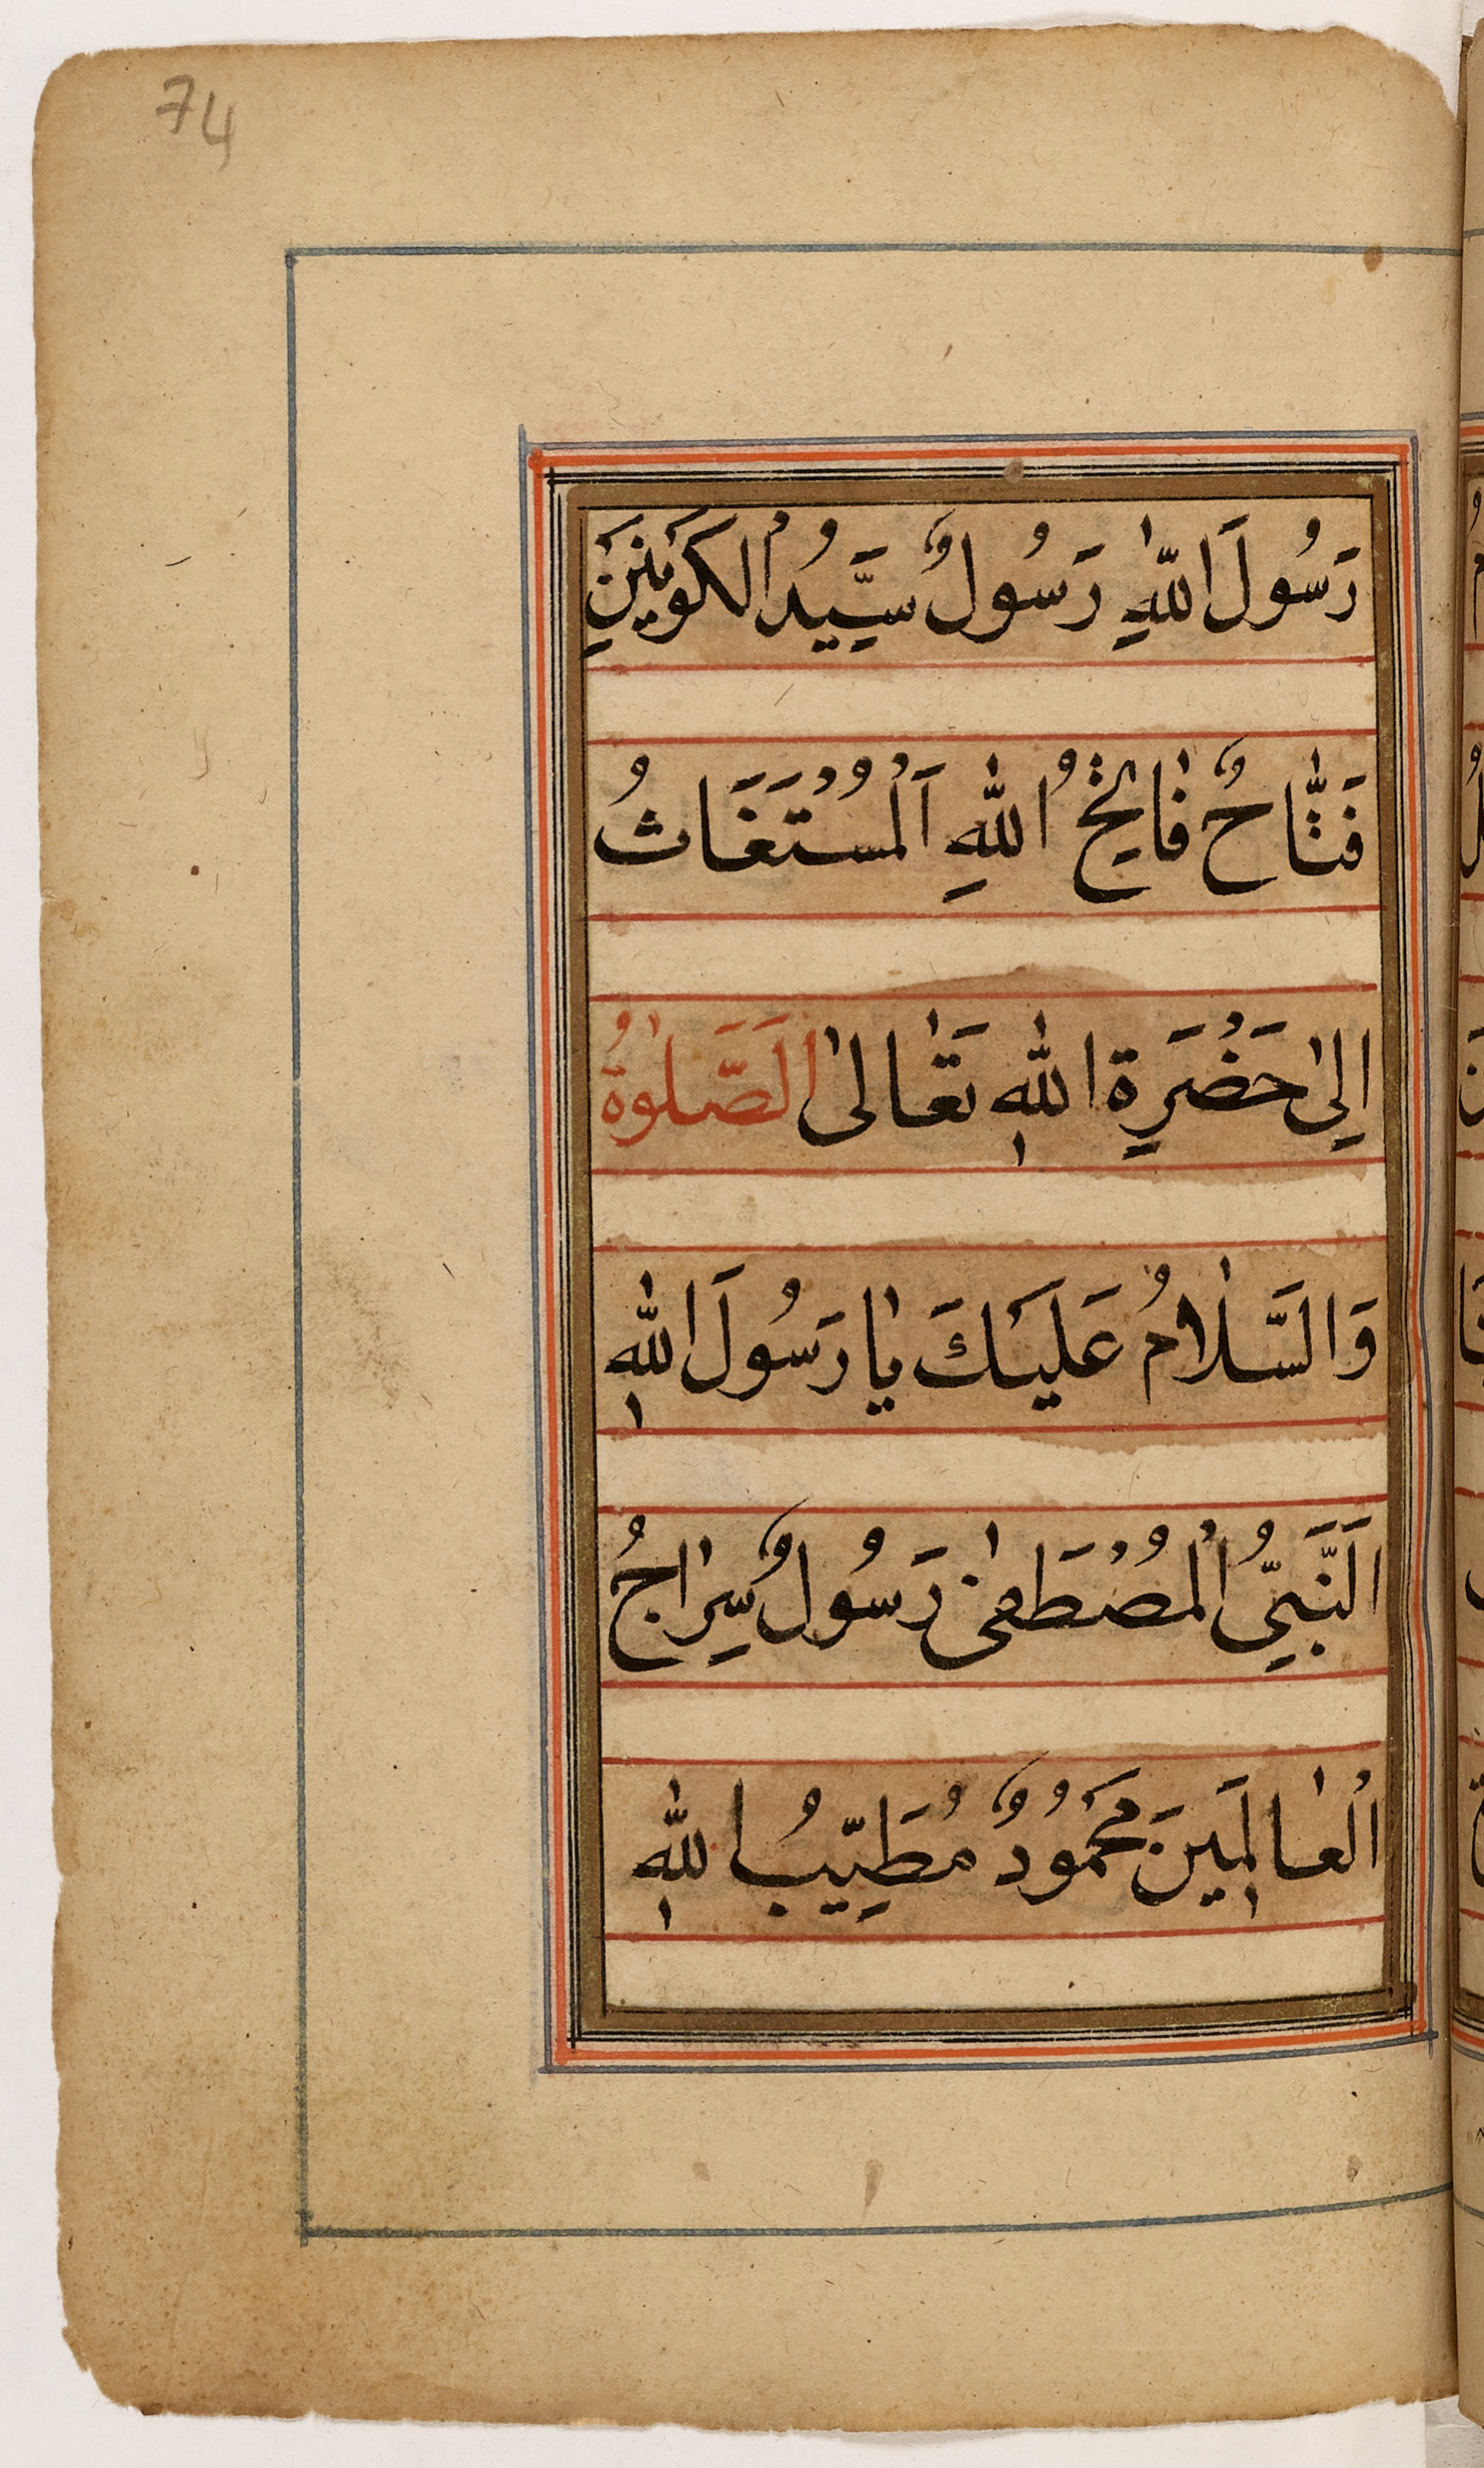 74
رَسُولَ اللّٰهِ رَسُولٌ سَيِّدُ الْكَوْنَيْنِ
فَتَّاحٌ فَاتِحُ اللّٰهِ اَلْمُسْتَغَاثُ
اِلىٰ حَضْرَةِ اللّٰهِ تَعَالىٰ اَلصَّلٰوةُ
وَالسَّلَامُ عَلَيْكَ يَا رَسُولَ اللّٰهِ
اَلنَّبِيُّ الْمُصْطَفىٰ رَسُولٌ سِرَاجُ
الْعَالَمِينَ مَحْمُودٌ مُطَيِّبُ اللّٰهِ